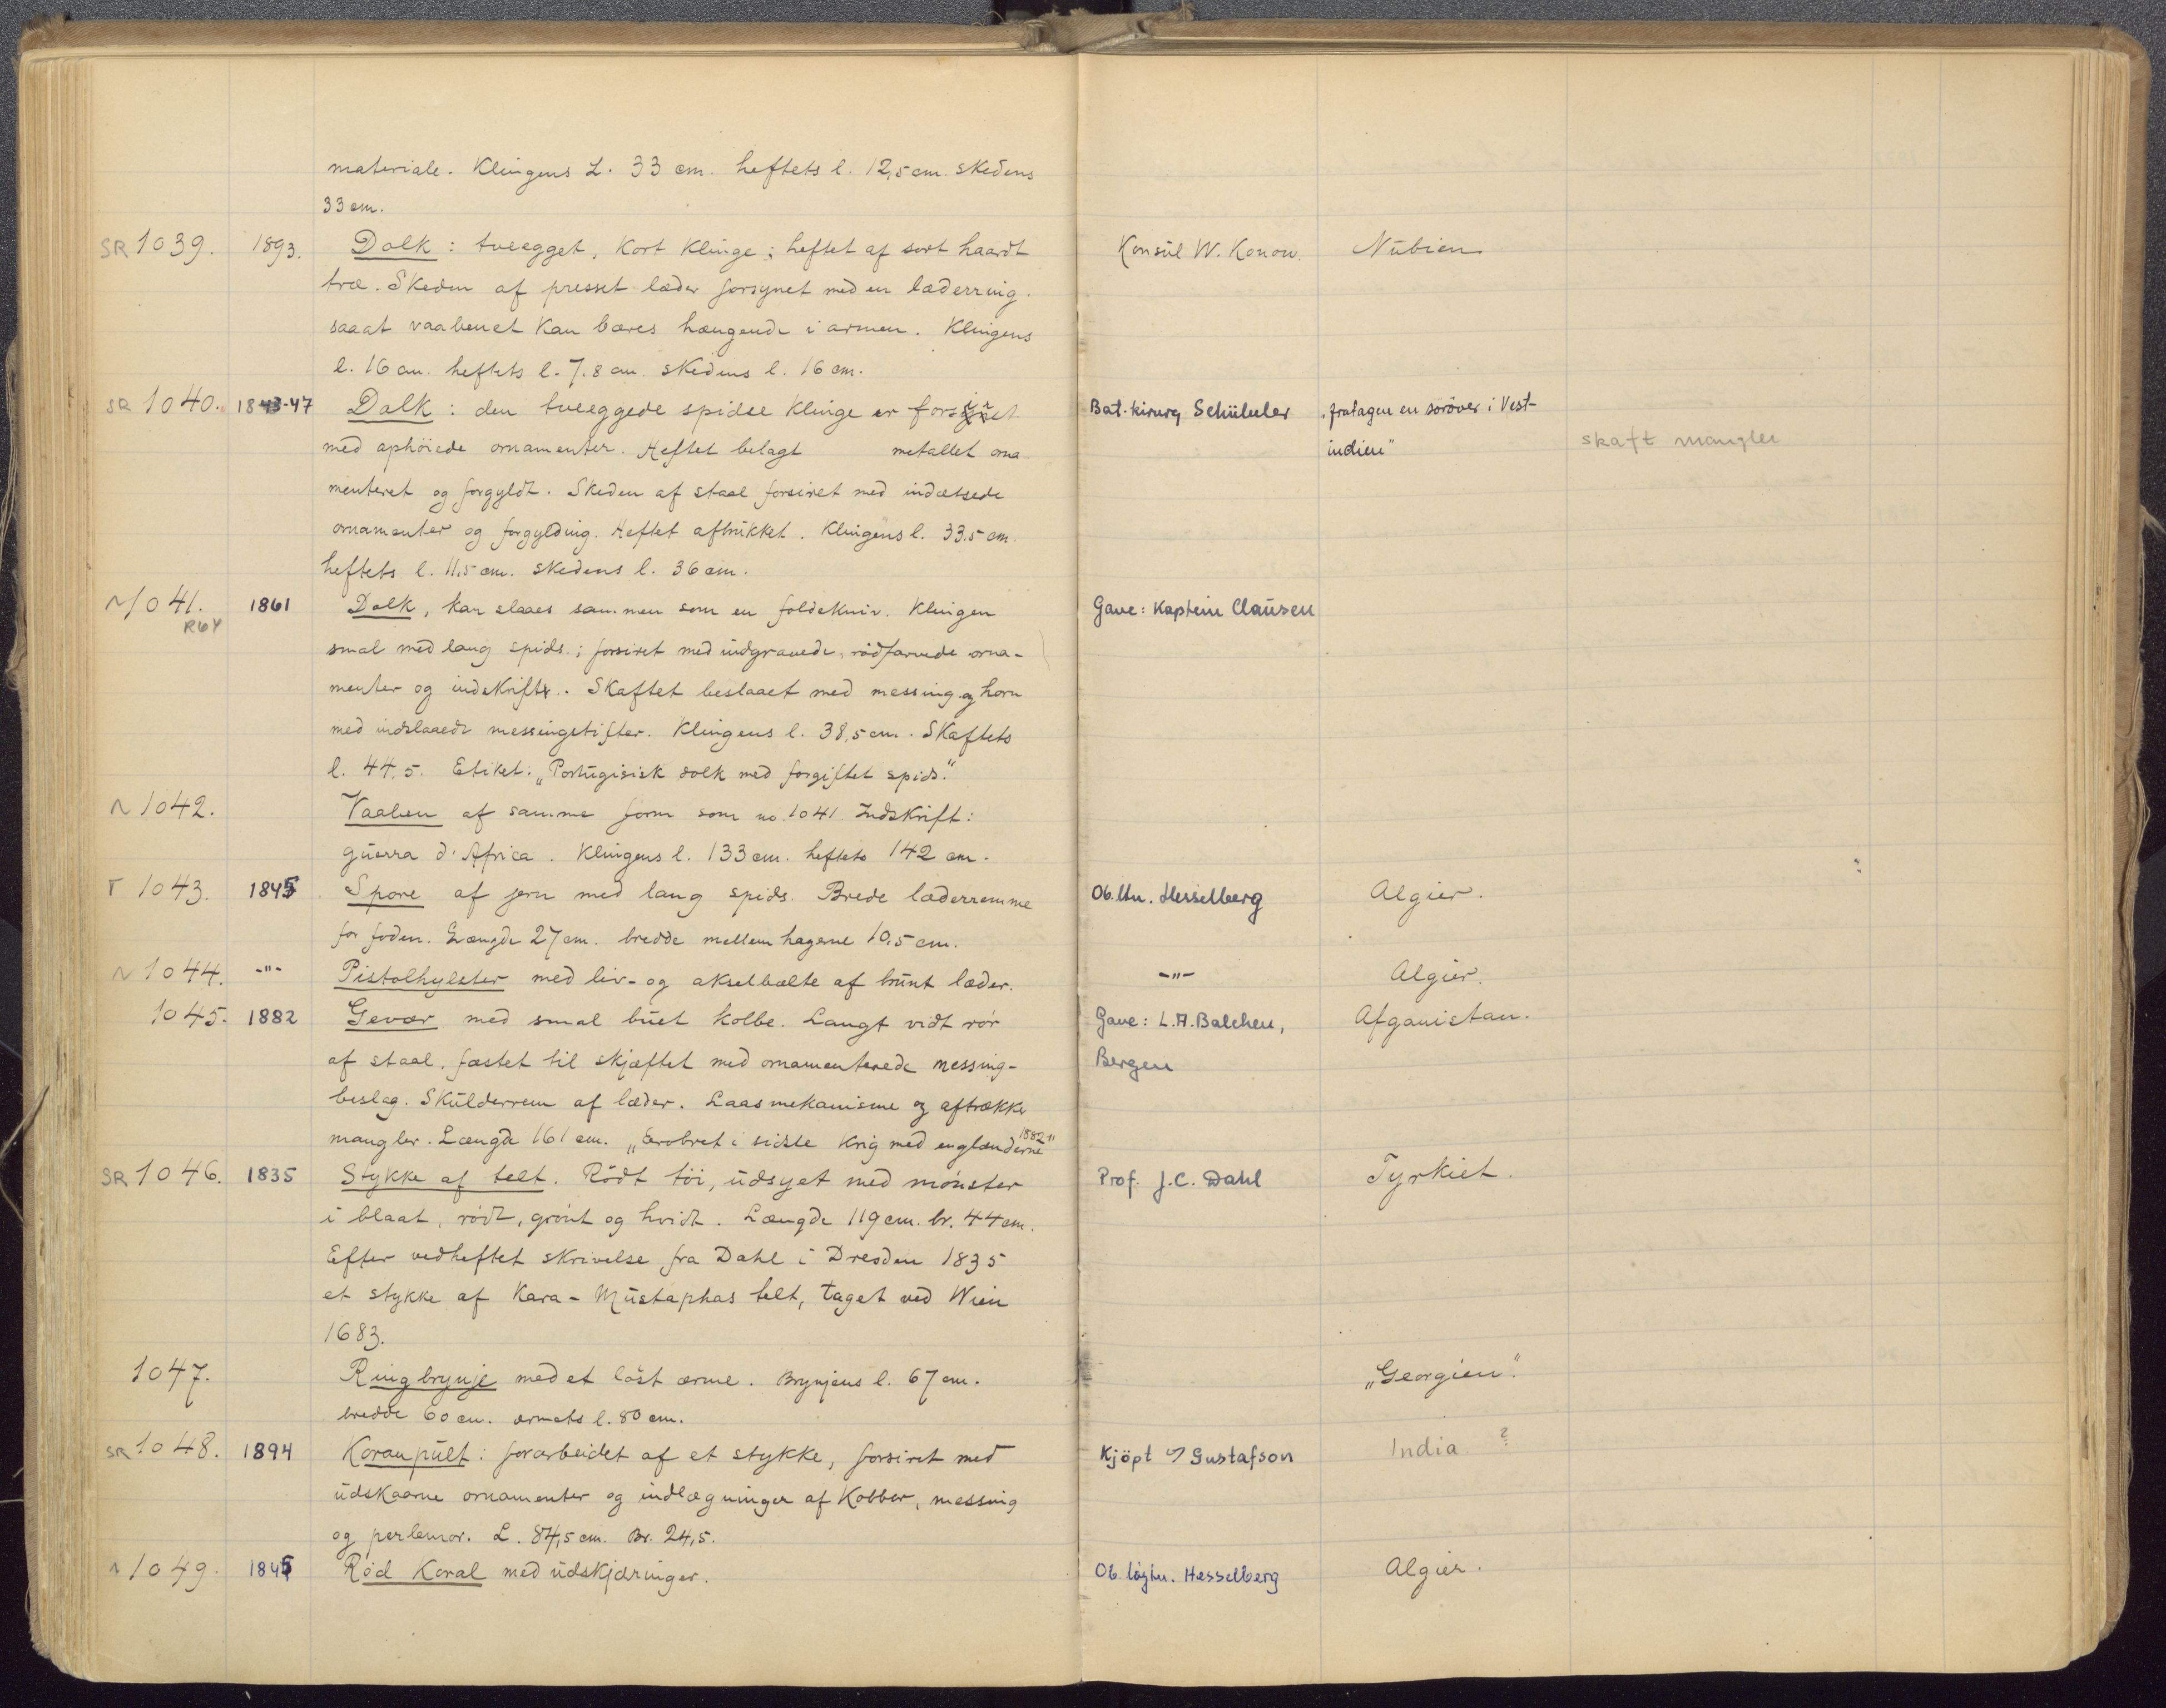 materiale. Klingens L. 33 cm. heftets l. 12,5 cm. skedens
33 cm.
SR 1039. 1893. Dolk : tveegget, kort klinge ; heftet af sort haardt Konsul W. Konow. Nubien
træ. Skeden af presset læder forsynet med en læderring.
saaat vaabenet kan bæres hængende i armen. Klingens
l. 16 cm. heftets l. 7.8 cm. skedens l. 16 cm.
SR 1040. 1843-47 Dolk : den tveeggede spidse klinge er forsiret Bat. kirurg Schübeler „fratagen en sørøver i Vest-
med ophöiede ornamenter. Heftet belagt metallet orna indien" skaft mangler
menteret og forgyldt. Skeden af staal forsiret med indætsede
ornamenter og forgylding. Heftet aftrükket. Klingens l. 33.5 cm.
heftets l. 11,5 cm. skedens l. 36 cm.
N 1041. R64 1861 Dolk, kan slaaes sammen som en foldekniv. Klingen Gave: Kaptein Clausen
smal med lang spids ; forsiret med indgravede, rödfarvede orna-
menter og indskrift. Skaftet beslaaet med messing og horn
med indslaaede messingstifter. Klingens l. 38,5 cm. Skaftets
l. 44.5. Etiket: „Portugisisk dolk med forgiftet spids."
N 1042. Vaaben af samme form som no. 1041 Indskrift:
guerra d'Africa. Klingens l. 133 cm. heftets 142 cm.
T 1043. 1845 Spore af jern med lang spids. Brede læderremme Ob. ltn. Hesselberg Algier.
for foden. Længde 27 cm. bredde mellem hagerne 10,5 cm.
N 1044. -"- Pistolhylster med liv- og akselbælte af brunt læder. -"- Algier.
1045. 1882 Gevær med smal buet kolbe. Langt vidt rör Gave: L.A. Balchen, Afganistan.
af staal. fæstet til skjæftet med ornamenterede messing- Bergen
beslag. Skulderrem af læder. Laasmekanisme og aftrækker
mangler. Længde 161 cm. „Erobret i sidste krig med englænderne 1882"
SR 1046. 1835 Stykke af telt. Rödt töi, udsyet med mönster Prof. J.C. Dahl Tyrkiet.
i blaat, rödt, grönt og hvidt. Længde 119 cm. br. 44 cm.
Efter vedheftet skrivelse fra Dahl i Dresden 1835
et stykke af Kara-Mustaphas telt, taget ved Wien
1683.
1047. Ringbrynje med et löst ærme. Brynjens l. 67 cm. „Georgien".
bredde 60 cm. ærmets l. 80 cm.
SR 1048. 1894 Koranpult : forarbeidet af et stykke, forsiret med Kjöpt v/ Gustafson India ?
udskaarne ornamenter og indlægninger af Kobber, messing
og perlemor. L. 84,5 cm. Br. 24,5.
N 1049. 1845 Röd Koral med udskjæringer. Ob. löjtn. Hesselberg Algier.